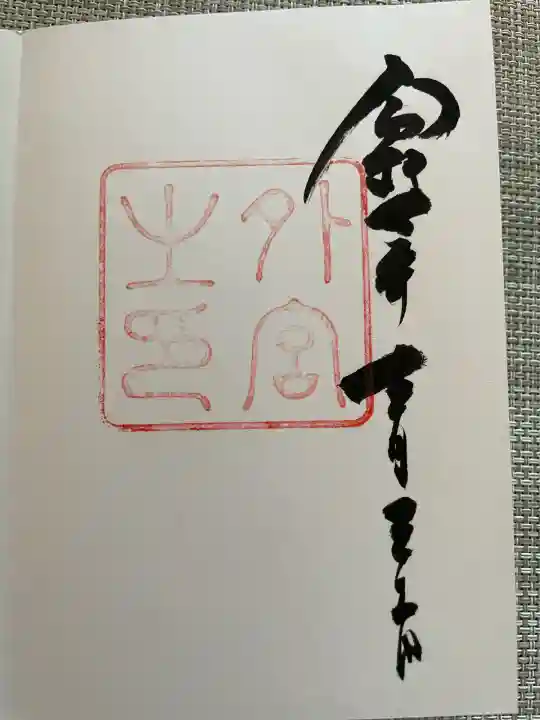 令和年月三十日
外宮
之印